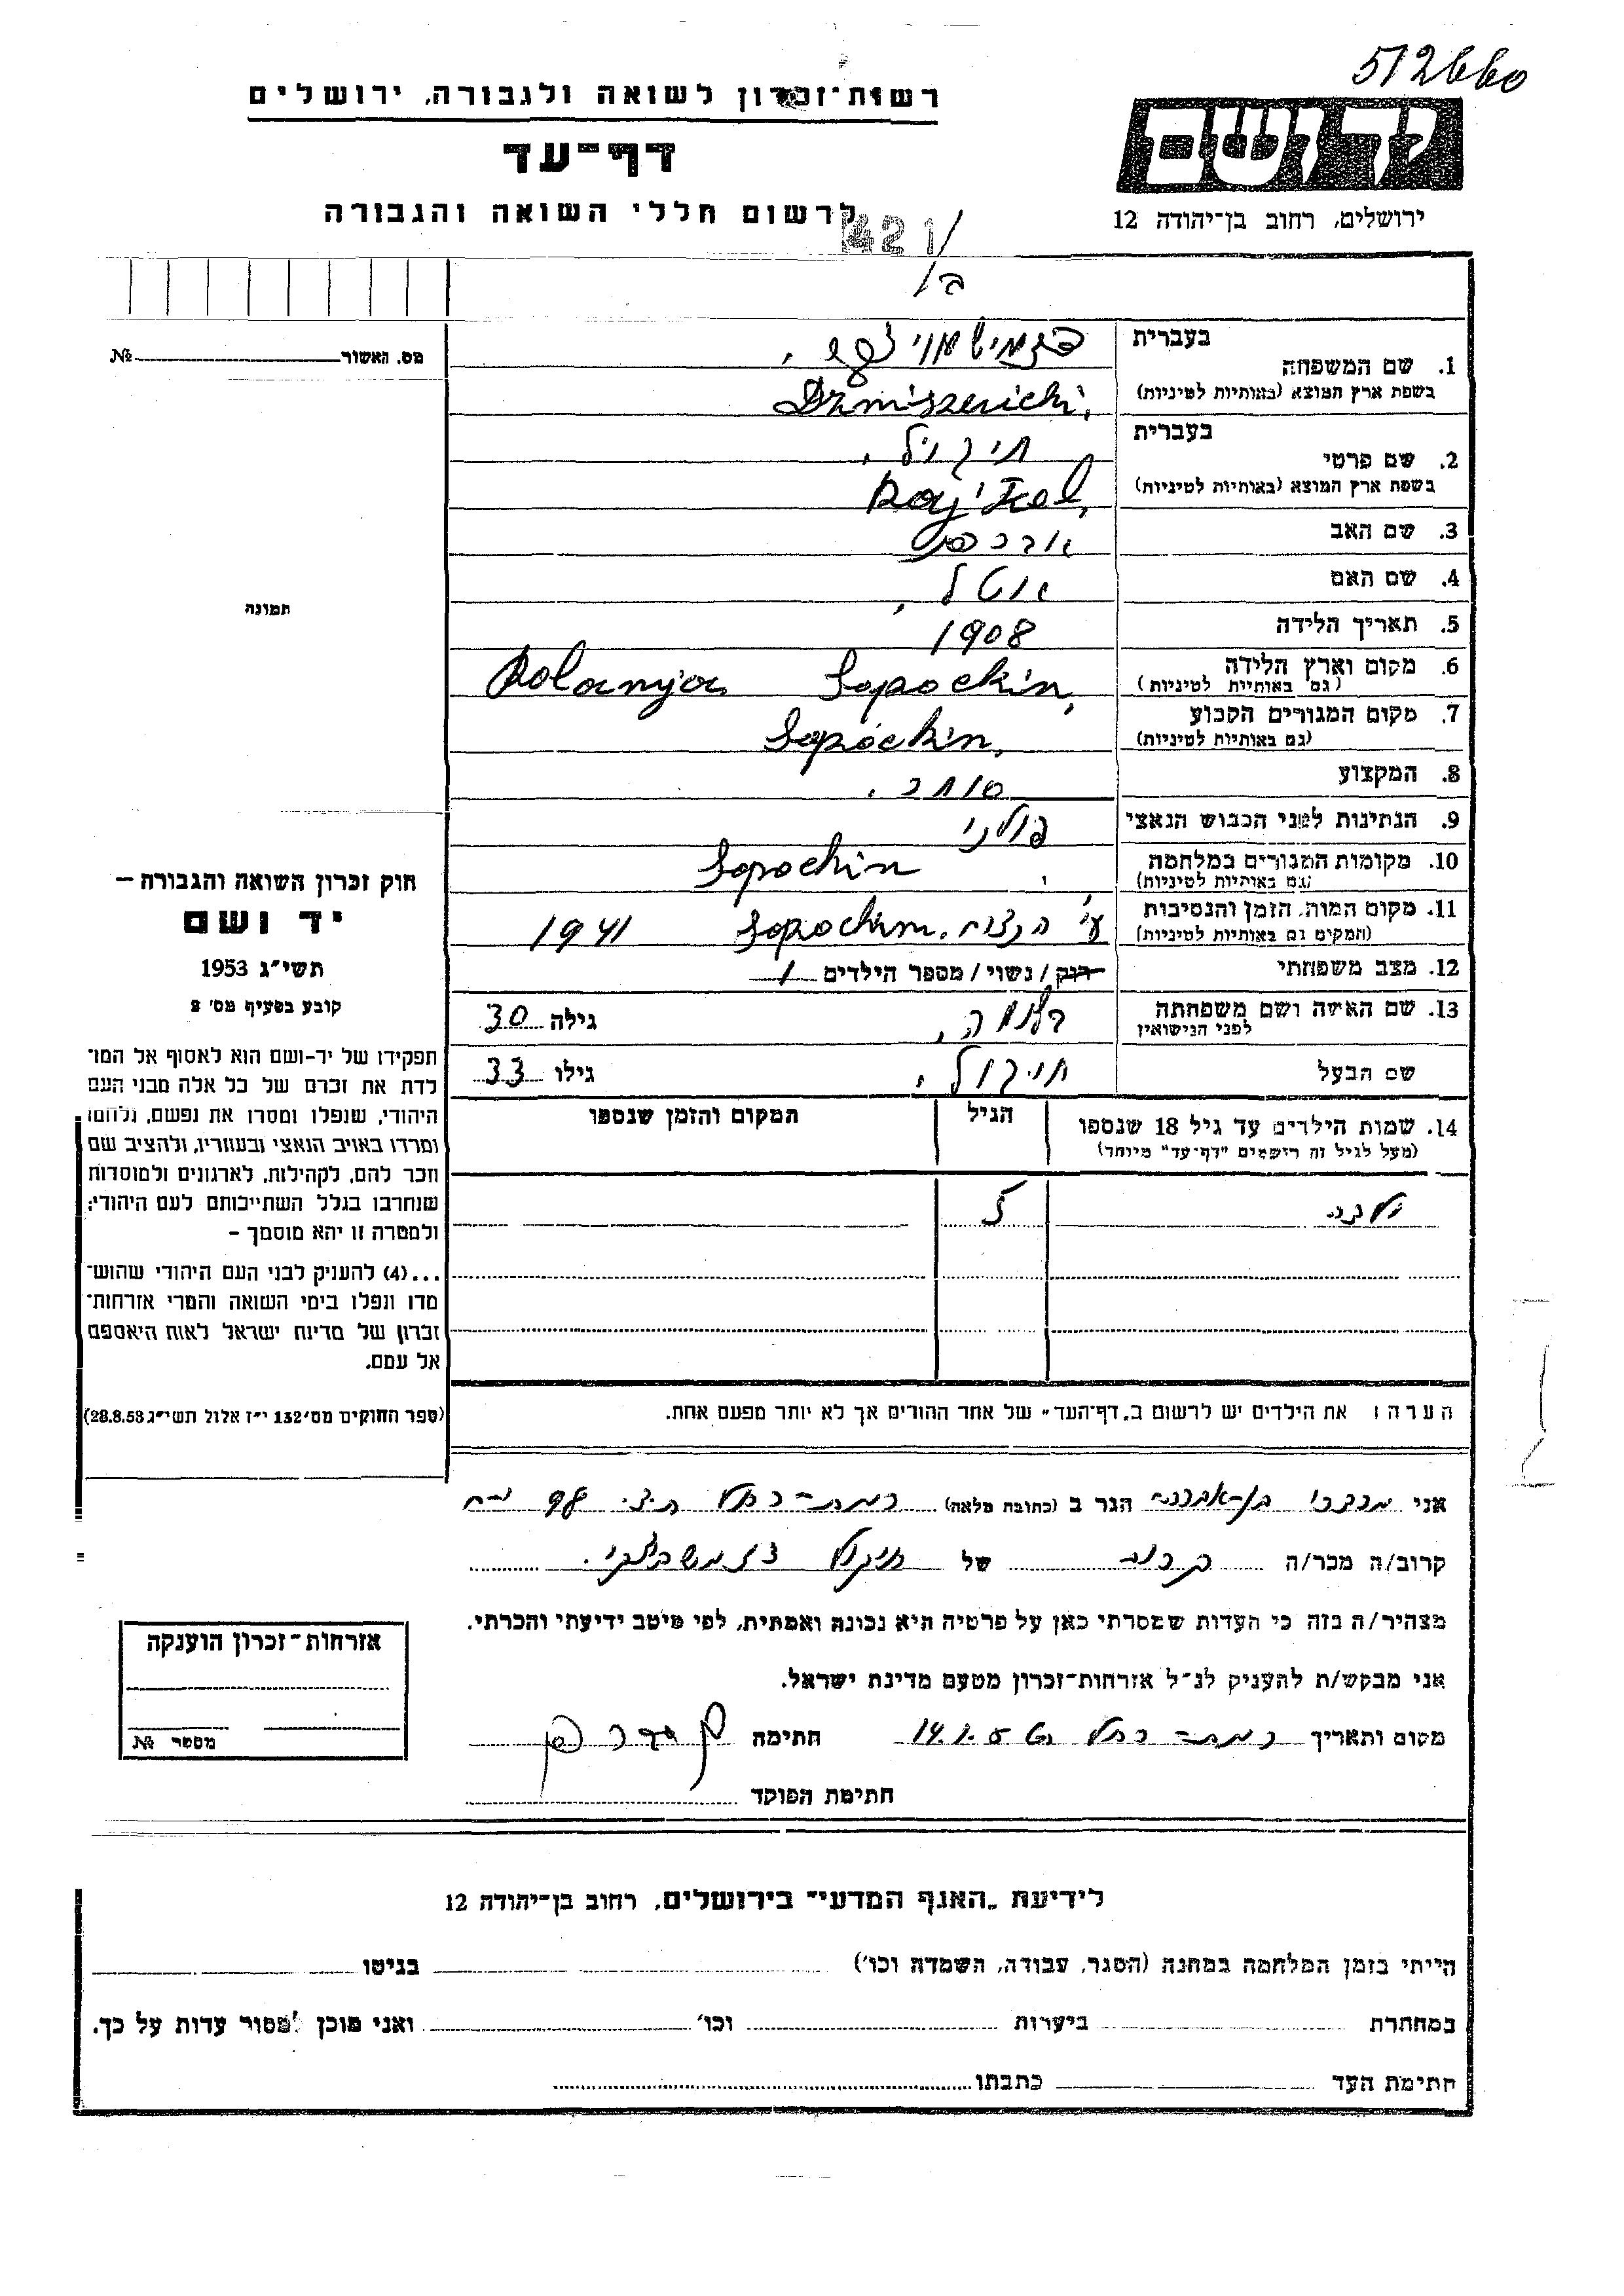 512660
רשות-זכרון לשואה ולגבורה, ירושלים
דף-עד
לרשום חללי השואה והגבורה
יד ושם
ירושלים, רחוב בן-יהודה 12
421/
מס. האשור № 
תמונה
בעברית
1. שם המשפחה
(בשפת ארץ המוצא (באותיות לטיניות
2. שם פרטי בעברית
(בשפת ארץ המוצא (באותיות לטיניות
3. שם האב
4. שם האם אטל
5. תאריך הלידה 1908
6. מקום וארץ הלידה Sopockin, Polanja
(גם באותיות לטיניות)
7. מקום המגורים הקבוע Sopóckin,
(גם באותיות לטיניות)
8. המקצוע סוחר.
9. הנתינות לפני הכבוש הנאצי פולני
10. מקומות המגורים במלחמה Sopockin
(גם באותיות לטיניות)
11. מקום המות, הזמן והנסיבות Sopockin. 1941
(המקום גם באותיות לטיניות)
12. מצב משפחתי רוק / נשוי / מספר הילדים 1
13. שם האשה ושם משפחתה גילה 30
לפני הנישואין
שם הבעל גילו 33
14. שמות הילדים עד גיל 18 שנספו הגיל המקום והזמן שנספו
(מעל לגיל זה רישמים "דף-עד" מיוחד)
5
הערה: את הילדים יש לרשום ב"דף-העד" של אחד ההורים אך לא יותר מפעם אחת.
חוק זכרון השואה והגבורה –
יד ושם
תשי"ג 1953
קובע בסעיף מס' 2
תפקידו של יד-ושם הוא לאסוף אל המו־
לדת את זכרם של כל אלה מבני העם
היהודי, שנפלו ומסרו את נפשם, נלחמו
ומרדו באויב הנאצי ובעוזריו, ולהציב שם
וזכר להם, לקהילות, לארגונים ולמוסדות
שנחרבו בגלל השתייכותם לעם היהודי;
ולמטרה זו יהא מוסמך –
...(4) להעניק לבני העם היהודי שהוש־
מדו ונפלו בימי השואה והמרי אזרחות־
זכרון של מדינת ישראל לאות היאספם
אל עמם.
(ספר החוקים מס' 132 י"ז אלול תשי"ג 28.8.53)
אני הגר ב (כתובת מלאה) רמת-רחל
קרוב/ה מכר/ה של
מצהיר/ה בזה כי העדות שמסרתי כאן על פרטיה היא נכונה ואמתית, לפי מיטב ידיעתי והכרתי.
אני מבקש/ת להעניק לנ"ל אזרחות-זכרון מטעם מדינת ישראל.
מקום ותאריך רמת-רחל חתימה
חתימת הפוקד
אזרחות-זכרון הוענקה
מספר №
לידיעת "האגף המדעי" בירושלים, רחוב בן-יהודה 12
הייתי בזמן המלחמה במחנה (הסגר, עבודה, השמדה וכו') בגיטו
במחתרת ביערות וכו' ואני מוכן למסור עדות על כך.
חתימת העד כתבתו